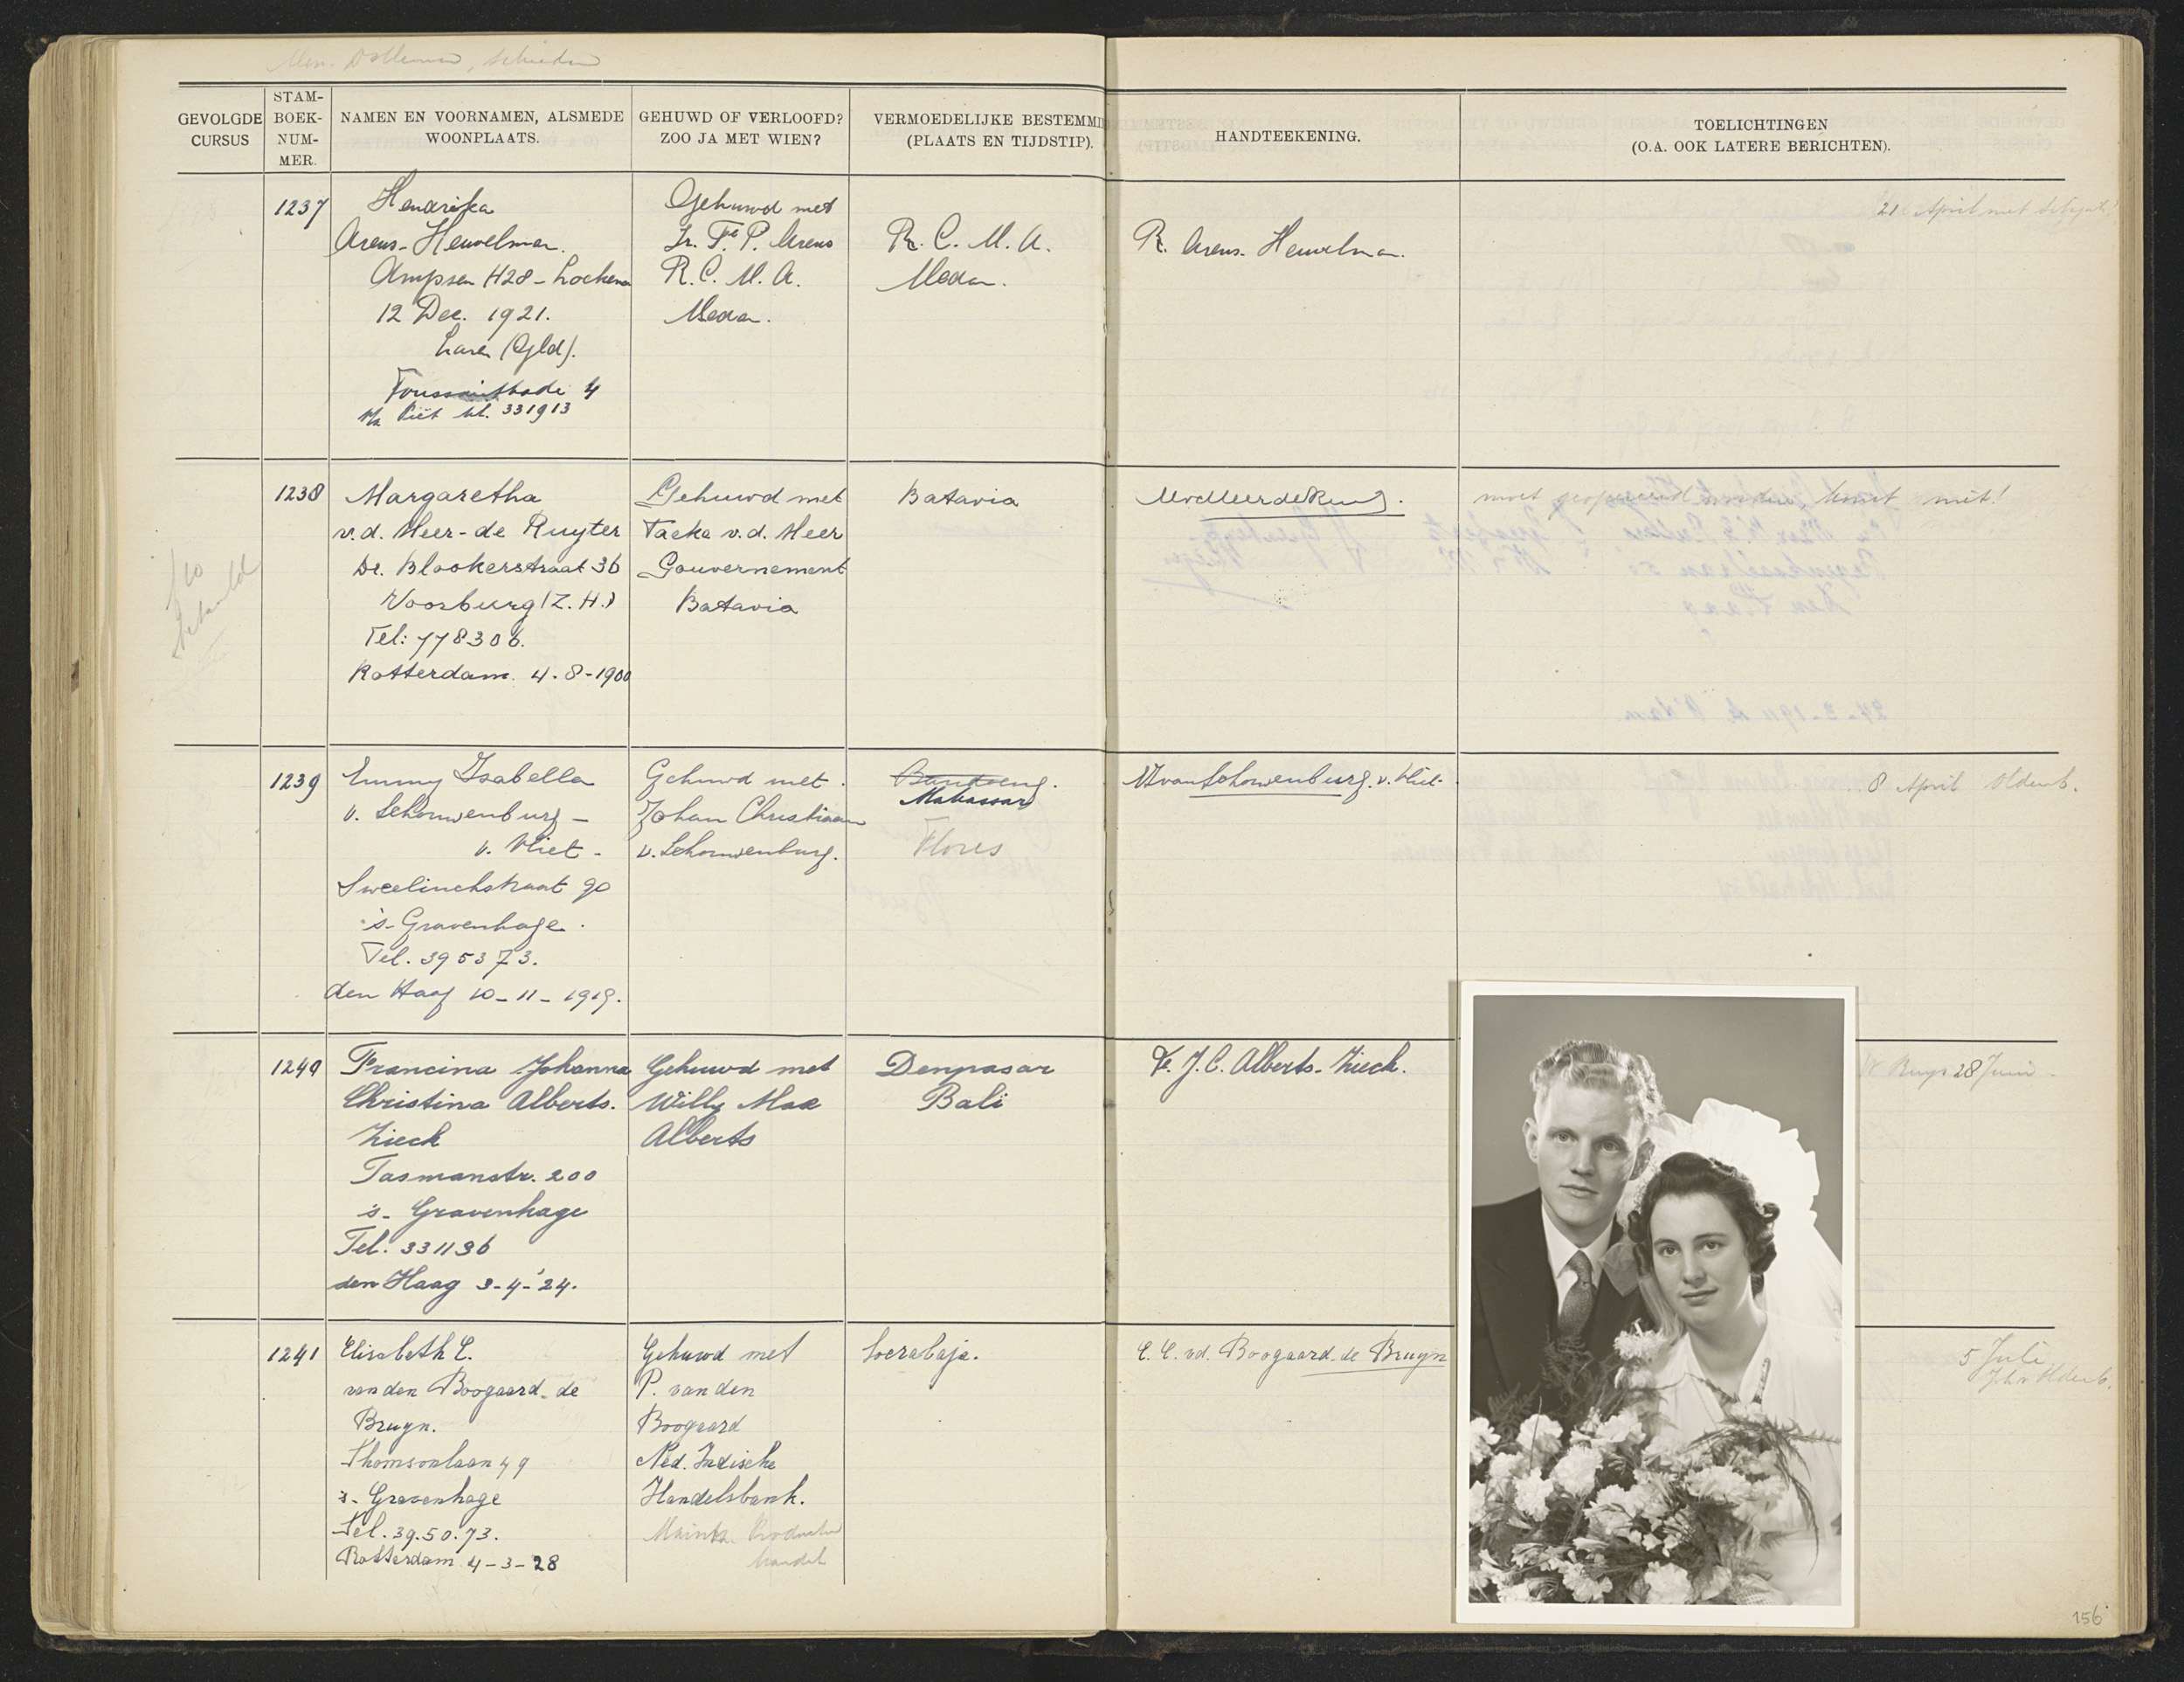 GEVOLGDE CURSUS
STAM-BOEK-NUM-MER.
NAMEN EN VOORNAMEN, ALSMEDE WOONPLAATS.
GEHUWD OF VERLOOFD? ZOO JA MET WIEN?
VERMOEDELIJKE BESTEMMI
(PLAATS EN TIJDSTIP).
HANDTEEKENING.
TOELICHTINGEN
(O.A. OOK LATERE BERICHTEN).
1237
Hendrika
Arens-Heuvelman.
Ampsen H28 - Lochem
12 Dec. 1921.
Laren (Gld).
4
Piët tel. 331913
Gehuwd met
Ir. Fr. P. Arens
R.C.M.A.
Medan.
R.C.M.A.
Medan.
R. Arens-Heuvelman.
21 April met
1238
Margaretha
v.d. Meer-de Ruyter
Dr. Blookerstraat 36
Voorburg (Z.H.)
Tel: 778306.
Rotterdam 4-8-1900
Gehuwd met
Taeke v.d. Meer
Gouvernement
Batavia
Batavia
moet geopereerd worden, komt niet!
1239
Emmy Isabella
v. Schouwenburg -
v. Vliet -
Sweelinckstraat 90
's-Gravenhage.
Tel. 395373.
den Haag 10-11-1919.
Gehuwd met
Johan Christiaan
v. Schouwenburg.
Bandoeng.
Makassar
Flores
van Schouwenburg-v. Vliet
8 April Oldenb.
1240
Francina Johanna
Christina Alberts-
Ziech
Tasmanstr. 200
's-Gravenhage
Tel. 331196
den Haag 3-4-'24.
Gehuwd met
Willy Max
Alberts
Denpasar
Bali
F.J.C. Alberts-Ziech.
Ruys 28 Juni
1241
Elisabeth C.
van den Boogaard-de
Bruyn.
Thomsonlaan 49
's-Gravenhage
Tel. 39.50.73.
Rotterdam 4-3-28
Gehuwd met
P. van den
Boogaard
Ned. Indische
Handelsbank.
handel
Soerabaja.
E.C. vd. Boogaard-de Bruyn
5 Juli
Oldenb.
156